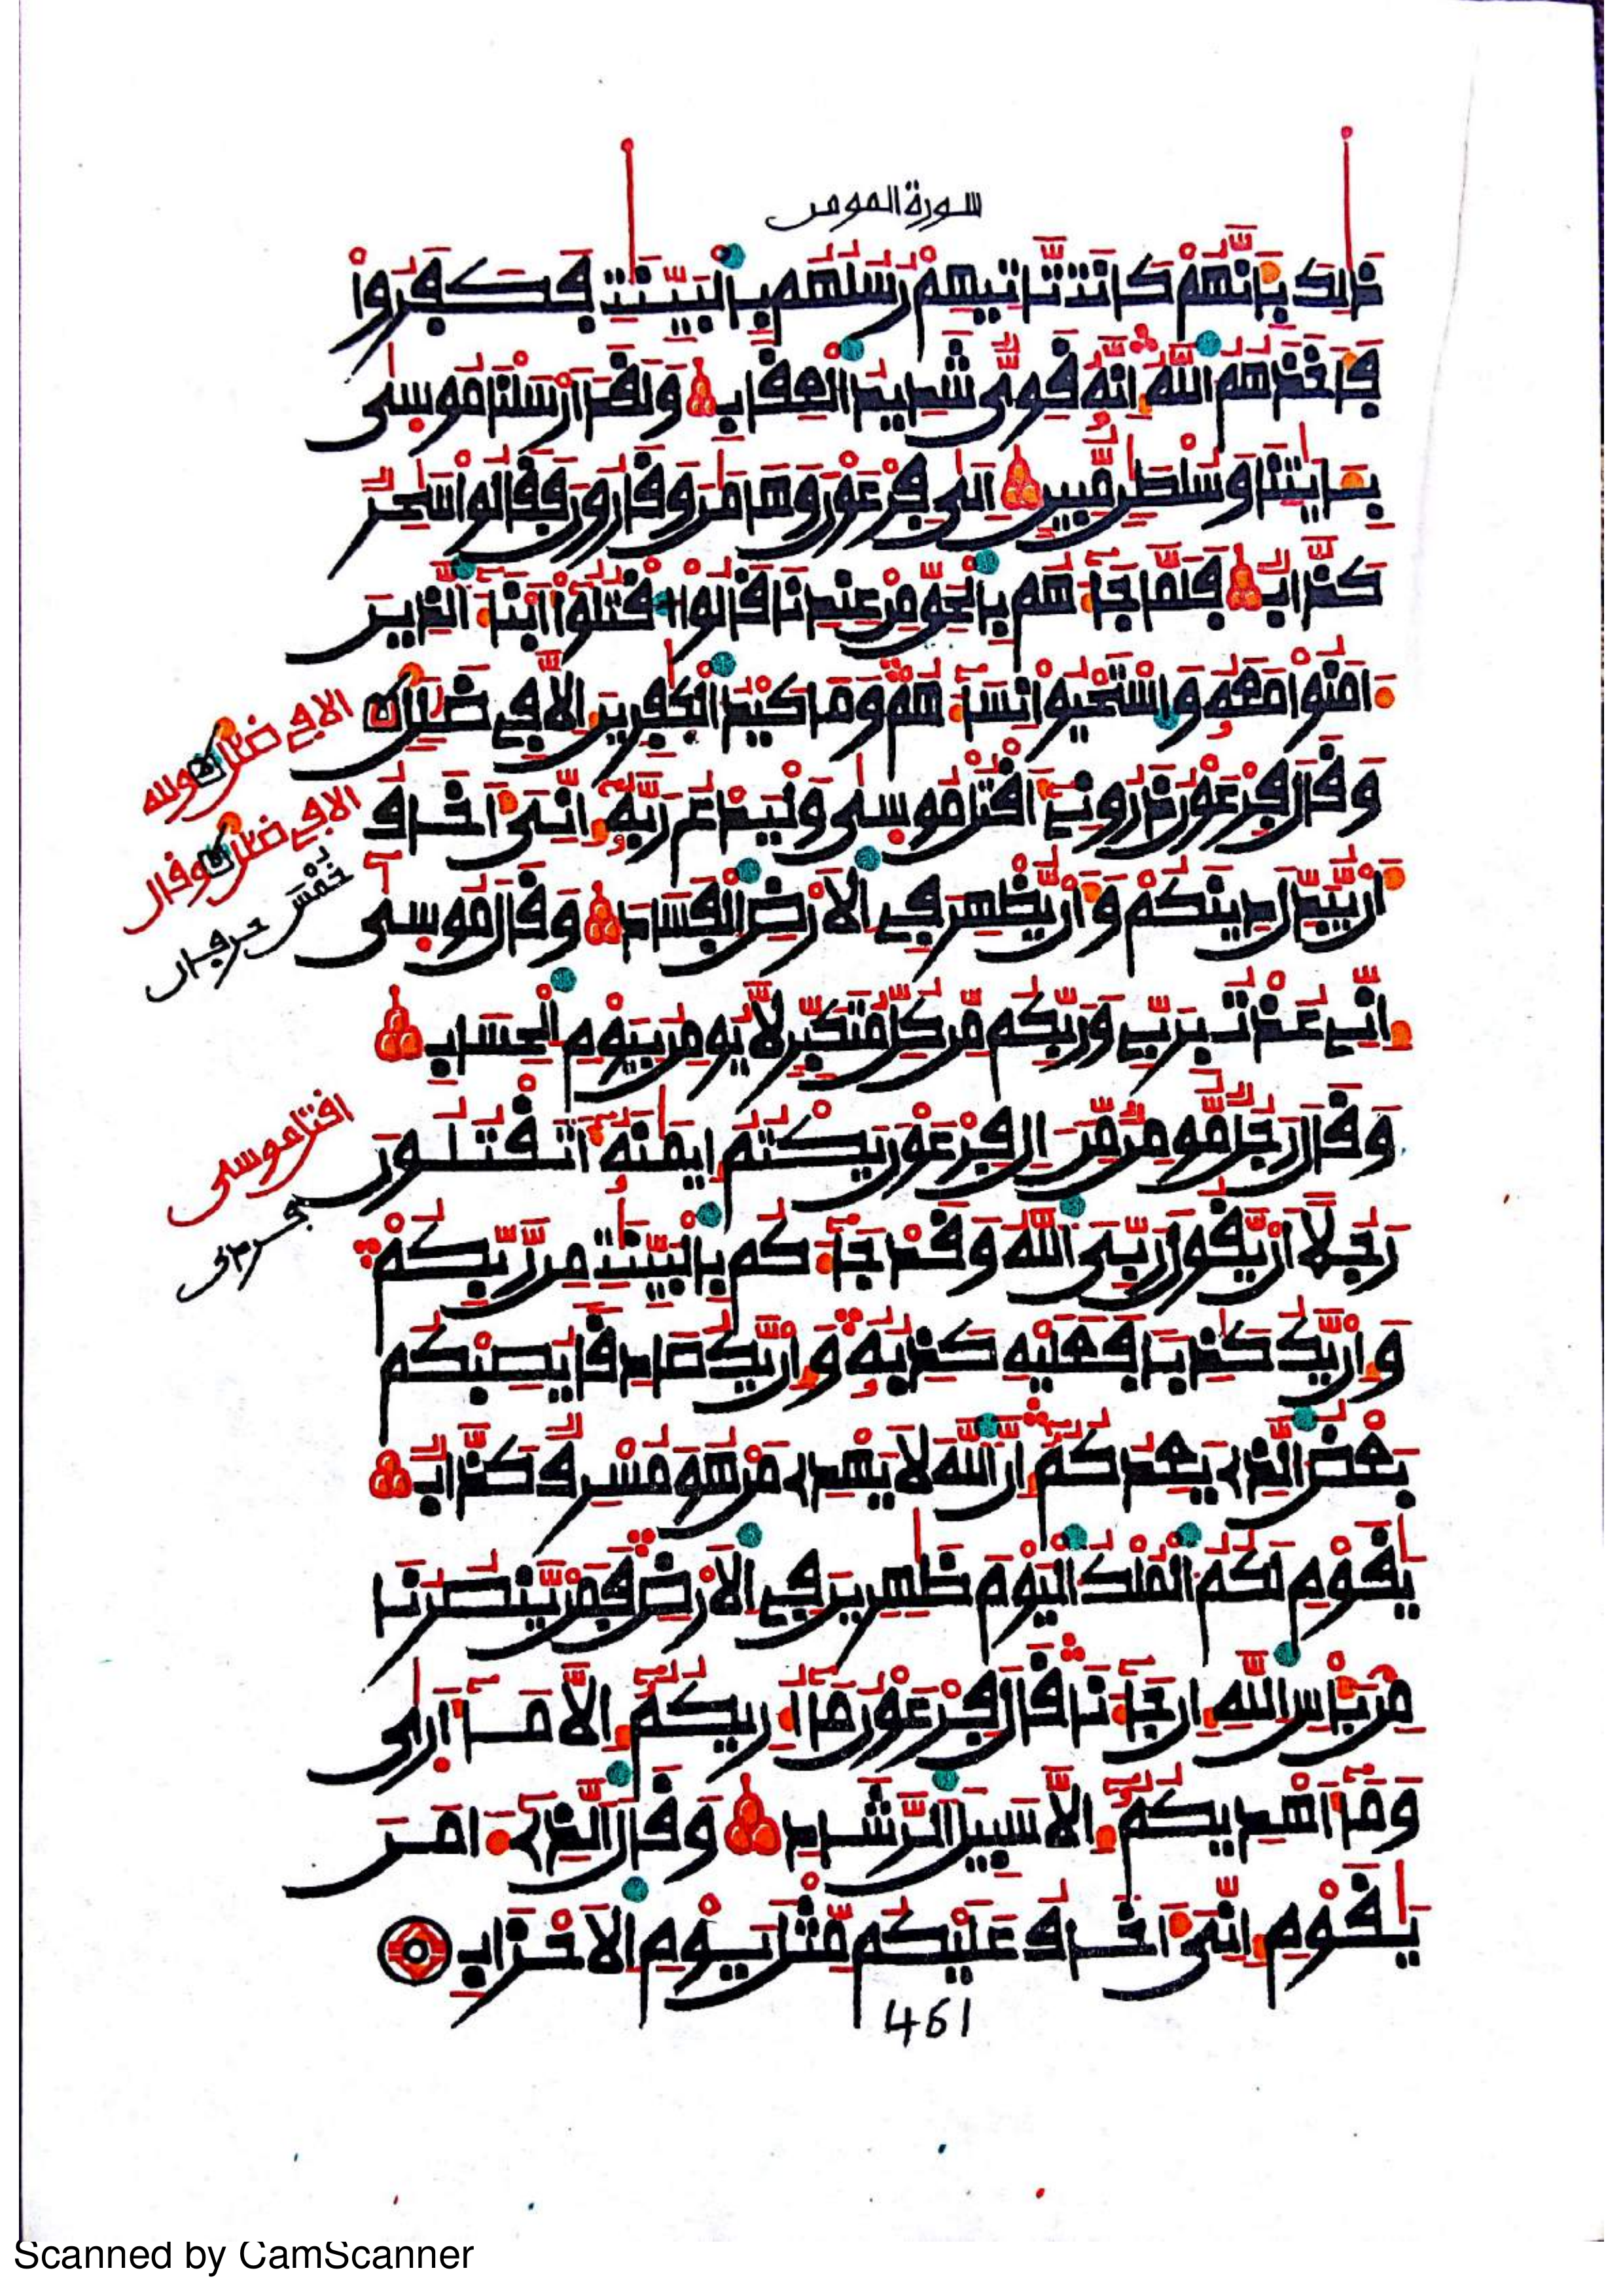 سورة المومن
ذَٰلِكَ بِأَنَّهُمْ كَانَت تَّاتِيهِمْ رُسُلُهُم بِالْبَيِّنَٰتِ فَكَفَرُواْ
فَأَخَذَهُمُ اللَّهُ إِنَّهُ قَوِىٌّ شَدِيدُ الْعِقَابِ وَلَقَدْ أَرْسَلْنَا مُوسَىٰ
بِـَٔايَٰتِنَا وَسُلْطَٰنٍ مُّبِينٍ إِلَىٰ فِرْعَوْنَ وَهَٰمَٰنَ وَقَٰرُونَ فَقَالُواْ سَٰحِرٌ
كَذَّابٌ فَلَمَّا جَآءَهُم بِالْحَقِّ مِنْ عِندِنَا قَالُواْ اقْتُلُوٓاْ أَبْنَآءَ الَّذِينَ
ءَامَنُواْ مَعَهُ وَاسْتَحْيُواْ نِسَآءَهُمْ وَمَا كَيْدُ الْكَٰفِرِينَ إِلَّا فِى ضَلَٰلٍ
وَقَالَ فِرْعَوْنُ ذَرُونِىٓ أَقْتُلْ مُوسَىٰ وَلْيَدْعُ رَبَّهُ إِنِّىَ أَخَافُ
أَنْ يُّبَدِّلَ دِينَكُمْ وَأَنْ يُّظْهِرَ فِى الْأَرْضِ الْفَسَادَ وَقَالَ مُوسَىٰ
إِنِّى عُذْتُ بِرَبِّى وَرَبِّكُم مِّن كُلِّ مُتَكَبِّرٍ لَّا يُومِنُ بِيَوْمِ الْحِسَابِ
وَقَالَ رَجُلٌ مُّومِنٌ مِّنَ ـالِ فِرْعَوْنَ يَكْتُمُ إِيمَٰنَهُ أَتَقْتُلُونَ
رَجُلًا أَنْ يَّقُولَ رَبِّىَ اللَّهُ وَقَدْ جَآءَكُم بِالْبَيِّنَٰتِ مِن رَّبِّكُمْ
وَإِنْ يَّكُ كَٰذِبًا فَعَلَيْهِ كَذِبُهُ وَإِنْ يَّكُ صَادِقًا يُصِبْكُم
بَعْضُ الَّذِى يَعِدُكُمْ إِنَّ اللَّهَ لَا يَهْدِى مَنْ هُوَ مُسْرِفٌ كَذَّابٌ
يَٰقَوْمِ لَكُمُ الْمُلْكُ الْيَوْمَ ظَٰهِرِينَ فِى الْأَرْضِ فَمَنْ يَّنصُرُنَا
مِن بَأْسِ اللَّهِ إِن جَآءَنَا قَالَ فِرْعَوْنُ مَآ أُرِيكُمُ إِلَّا مَآ أَرَىٰ
وَمَآ أَهْدِيكُمُ إِلَّا سَبِيلَ الرَّشَادِ وَقَالَ الَّذِىٓ ءَامَنَ
يَٰقَوْمِ إِنِّىَ أَخَافُ عَلَيْكُم مِّثْلَ يَوْمِ الْأَحْزَابِ
الا في ضلل
وقال
اقتل موسى
461
Scanned by CamScanner